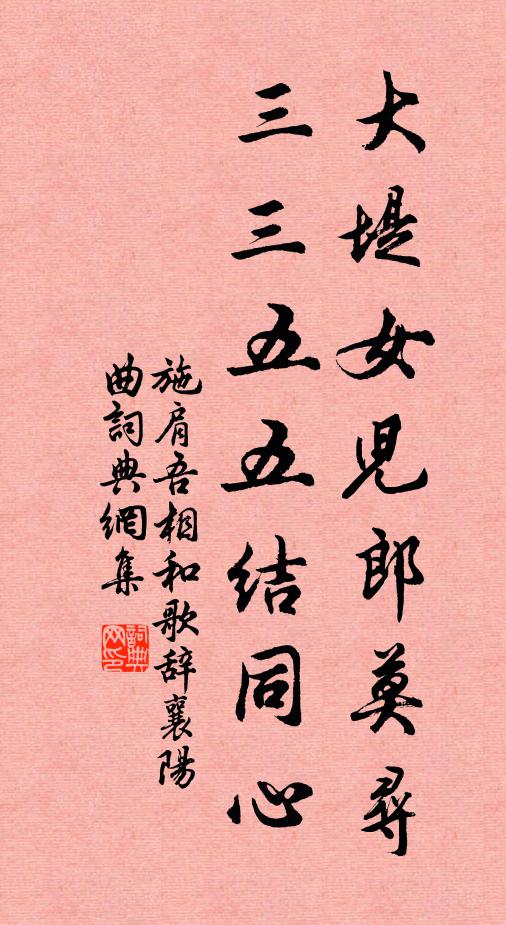 大堤女兒郎莫尋
三三五五結同心
施肩吾相和歌辞襄陽
曲詞典網集
詞典网印